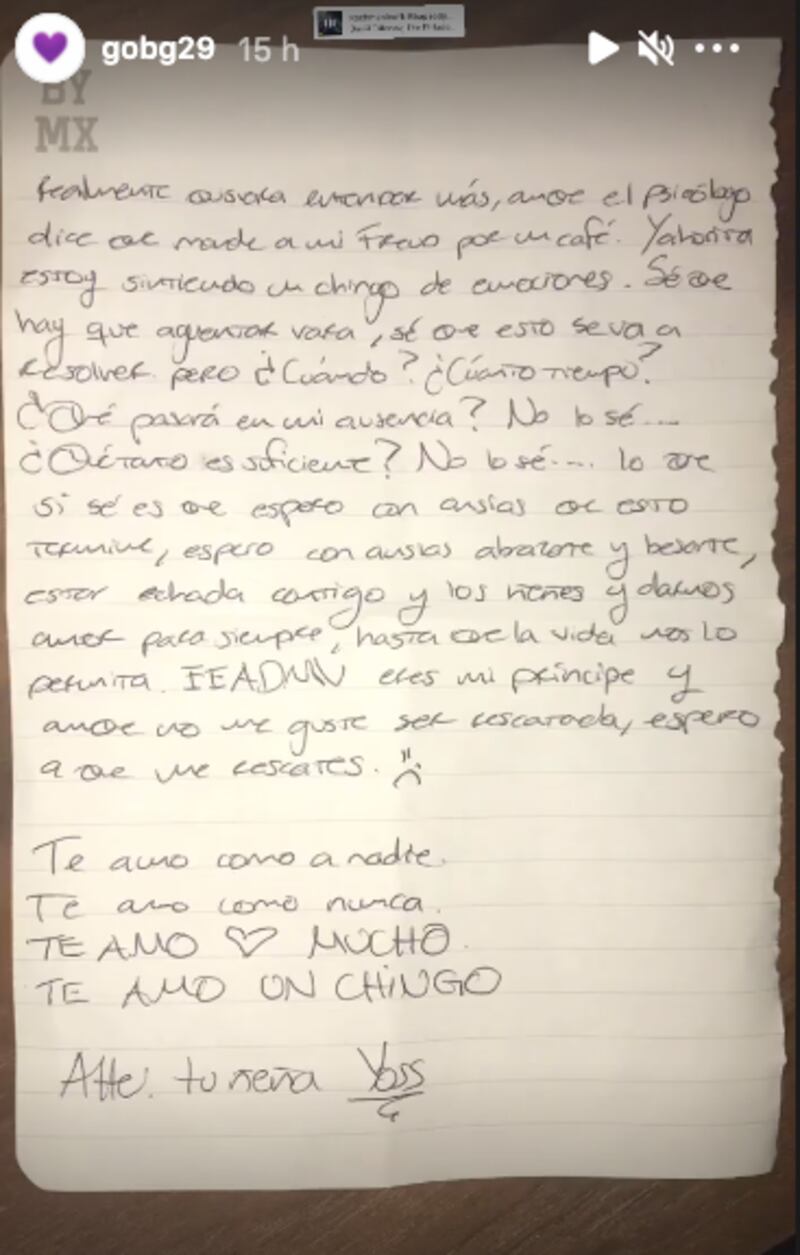 gobg29 15 h
BY
MX
Realmente quisiera entender más, anqe el psicólogo
dice qe mande a mi Freud por un café. Y ahorita
estoy sintiendo un chingo de emociones. Sé qe
hay que aguentar vara, sé qe esto se va a
resolver pero ¿Cuándo? ¿Cúanto tiempo?
¿Qé pasará en mi ausencia? No lo sé....
¿Qé tanto es suficiente? No lo sé.... lo qe
si sé es qe espero con ansías qe esto
termine, espero con ansias abrazarte y besarte,
estar echada contigo y los nenes y darnos
amor para siempre, hasta qe la vida nos lo
permita. eres mi príncipe y
anqe no me guste ser rescatada, espero
a qe me rescates.
Te amo como a nadie.
Te amo como nunca.
TE AMO MUCHO.
TE AMO UN CHINGO
Atte: tu nena Yoss